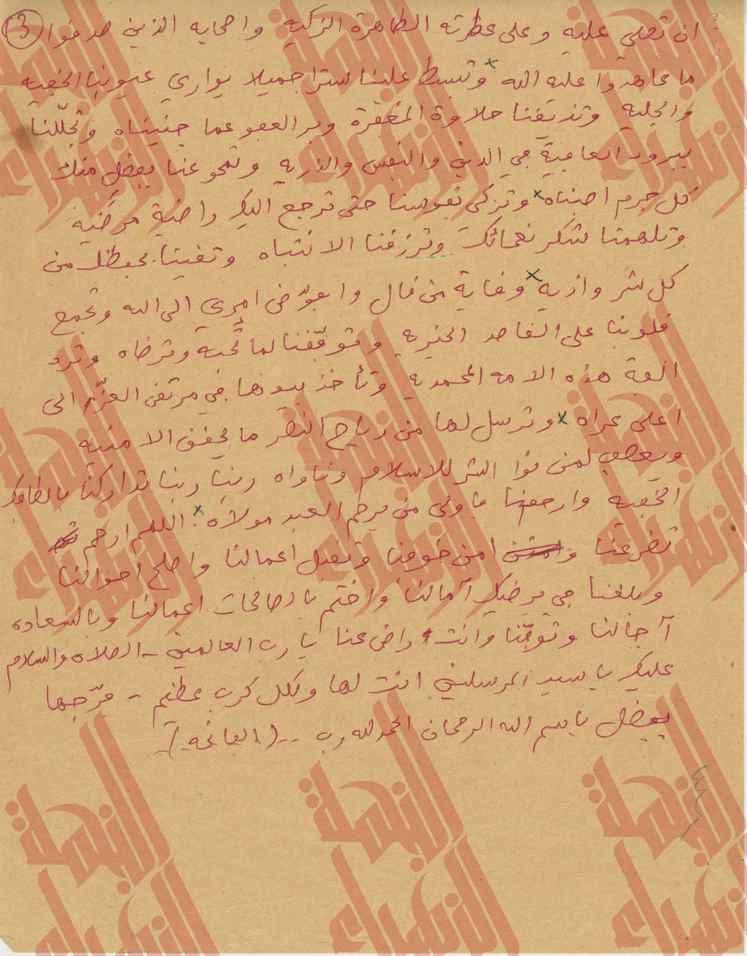 (3)
ان تصلي عليه وعلى عطرته الطاهرة الزكية واصحابه الذين صدقوا
ما عاهدوا عليه الله × وتبسط علينا سترا جميلا يواري عيوبنا الخفية
والجلية وتذيقنا حلاوة المغفرة وبر العفو عما جنيناه وتجلّلنا
ببرود العافية في الدين والنفس والذرية وتمحو عنا بفضل منك
كل جرم اصبناه × وتزكي نفوسنا حتى ترجع اليك راضية مرضية
وتلهمنا شكر نعمائك وترزقنا الانتباه وتقينا بحفظك من
كل شر واذية × وقاية من قال وافوّض امري الى الله وتجمع
قلوبنا على المقاصد الخيرية وتوفّقنا لما تحبه وترضاه وترد
الفة هذه الامه المحمدية وتأخذ بيدها في مرتقى العزّ الى
اعلى عراه × وترسل لها من رياح النصر ما يحقق الامنية
الشر للاسلام وناواه ربنا ربنا تداركنا بالطافك
الخفيه وارحمنا يا ولي من يرحم العبد مولاه × اللهم ارحم
تضرعنا وامن خوفنا وتقبل اعمالنا واصلح احوالنا
وبلغنا في مرضيك آمالنا واختم بالصالحات اعمالنا وبالسعاده
آجالنا وتوفّنا وانت راض عنا يا رب العالمين - الصلاه والسلام
عليك يا سيد المرسلين انت لها ولكل كرب عظيم - فرّجها
بفضل باسم الله الرحمان الحمد لله رب -- (الفاتحة)
النهضة
الزهراء